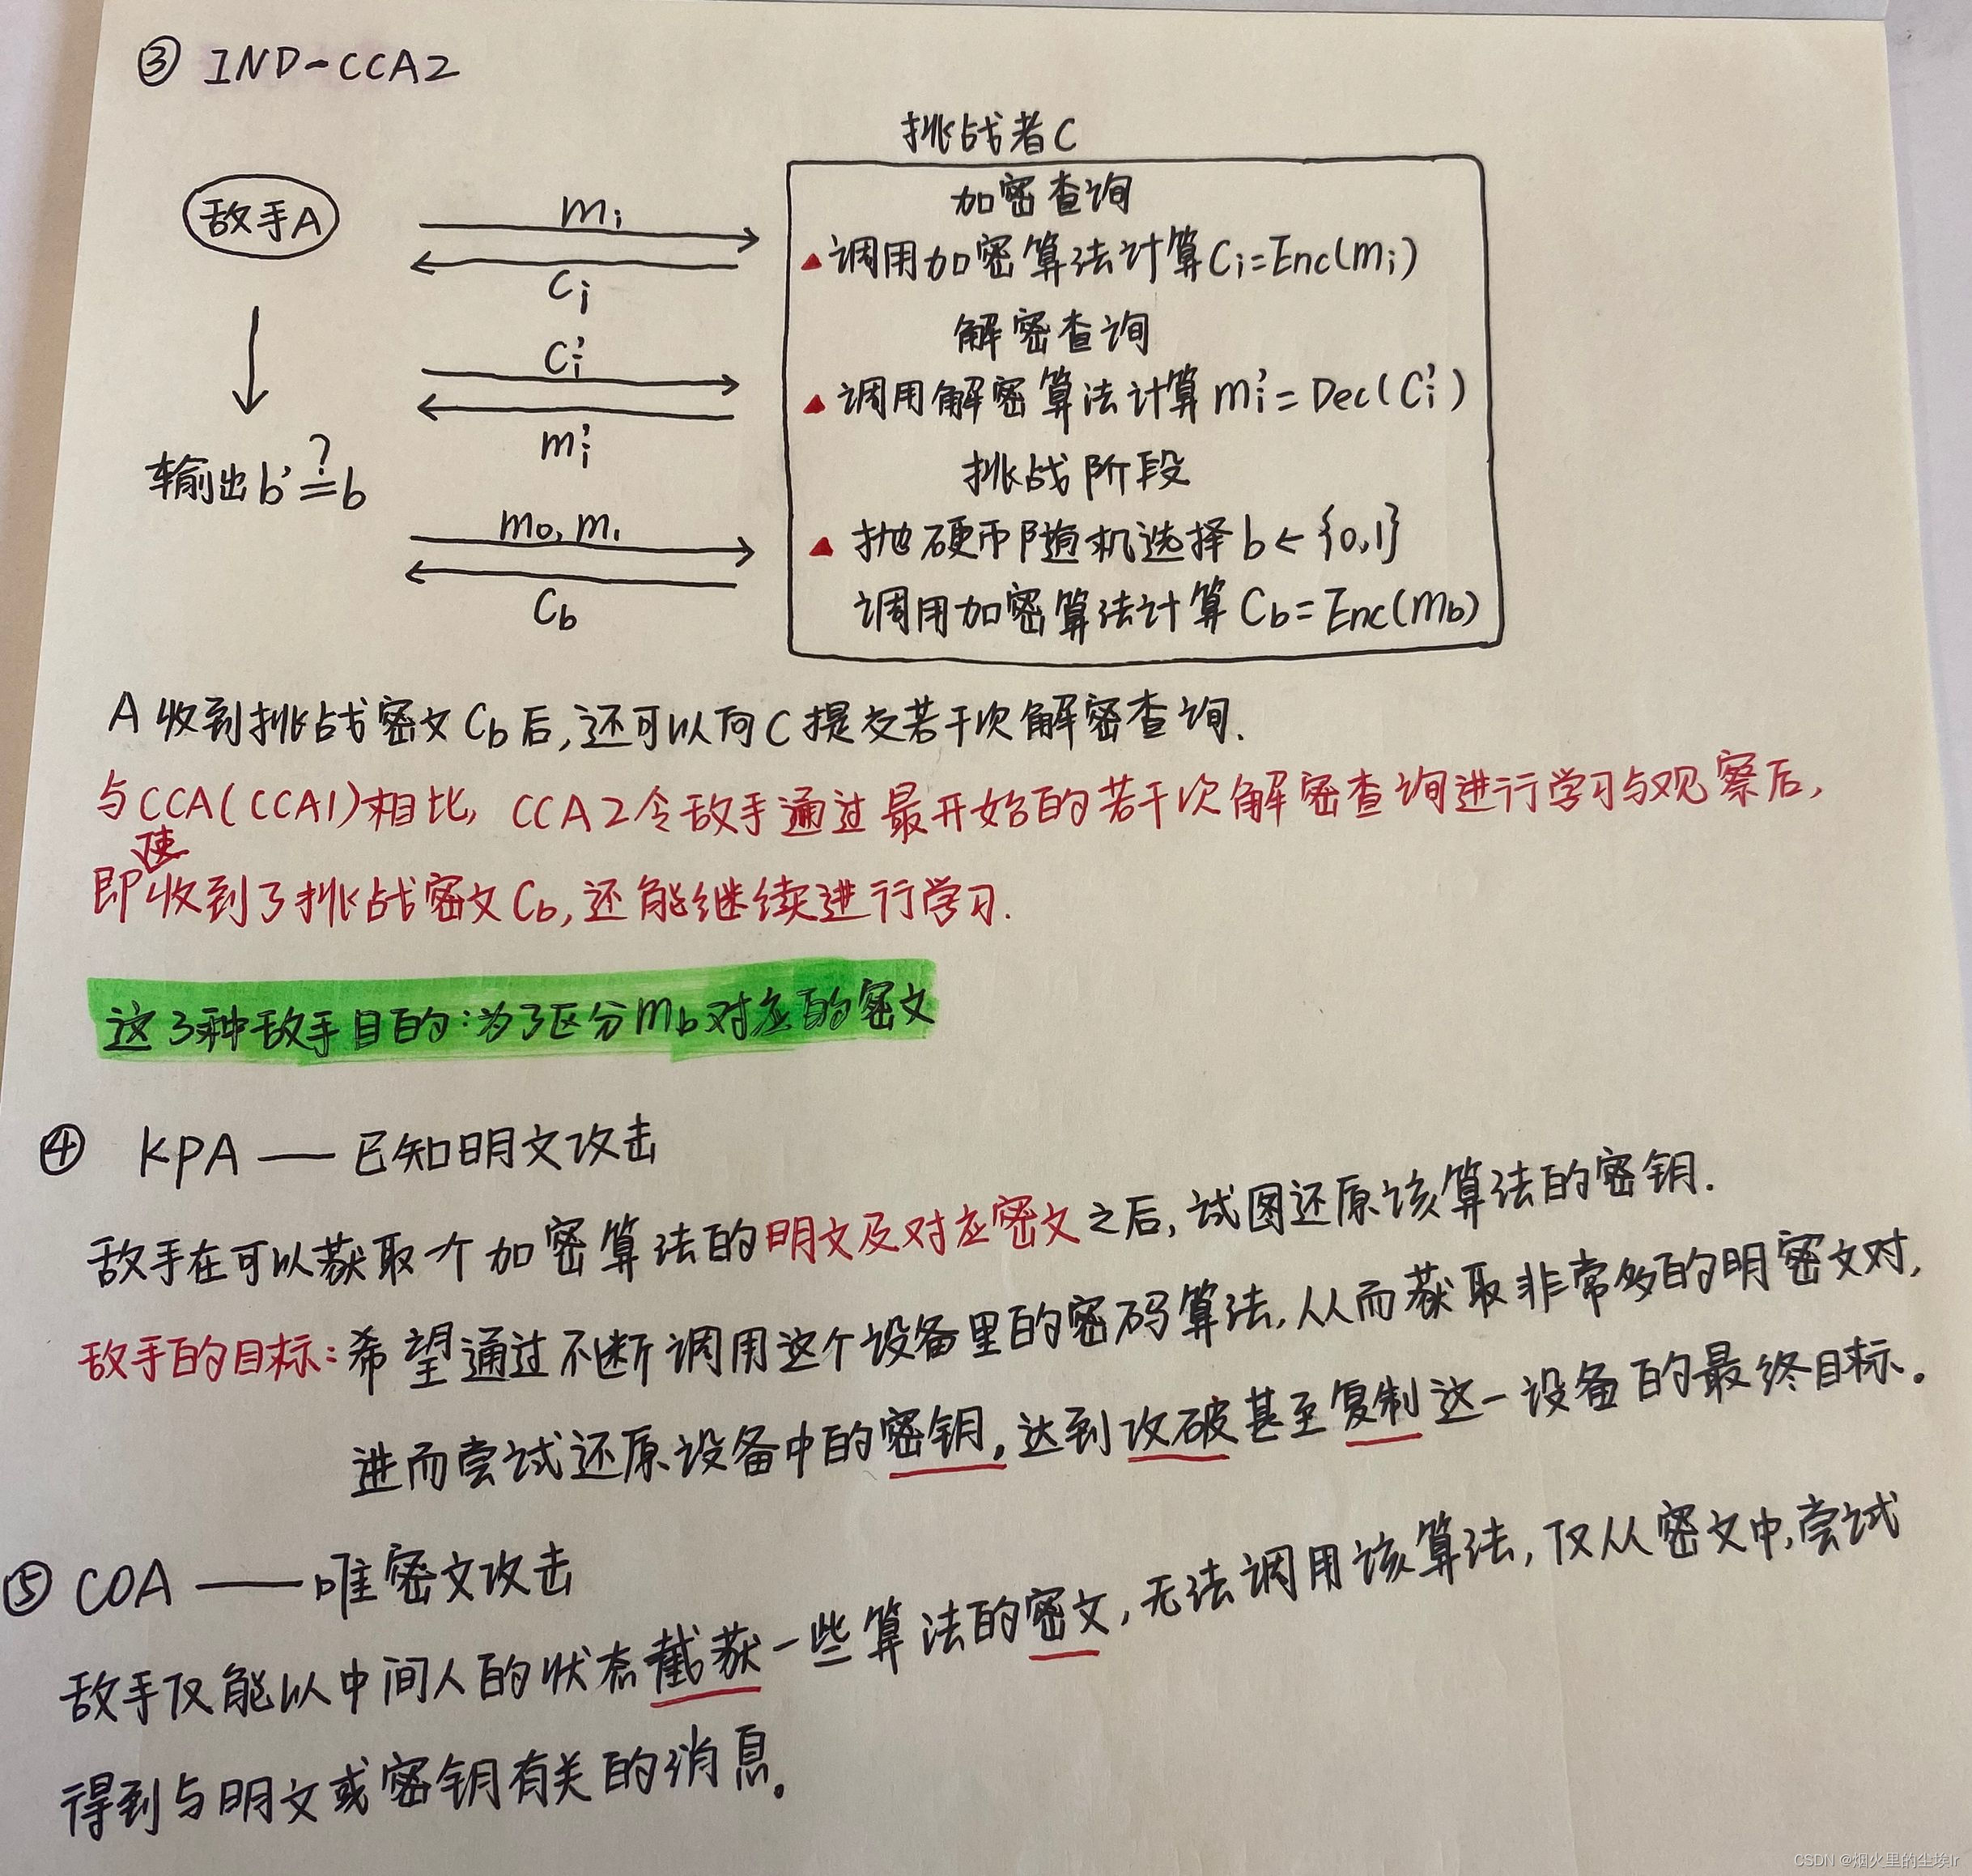 ③ IND-CCA2
挑战者C
敌手A
mᵢ
Cᵢ
加密查询
▲调用加密算法计算Cᵢ=Enc(mᵢ)
解密查询
Cᵢ'
mᵢ'
▲调用解密算法计算mᵢ'=Dec(Cᵢ')
输出b'≟b
挑战阶段
m₀,m₁
C_b
▲抛硬币随机选择b←{0,1}
调用加密算法计算C_b=Enc(m_b)
A收到挑战密文C_b后,还可以向C提交若干次解密查询.
与CCA(CCA1)相比, CCA2令敌手通过最开始的若干次解密查询进行学习与观察后,
即使收到了挑战密文C_b,还能继续进行学习.
这3种敌手目的:为了区分m_b对应的密文
④ KPA——已知明文攻击
敌手在可以获取个加密算法的明文及对应密文之后,试图还原该算法的密钥.
敌手的目标:希望通过不断调用这个设备里的密码算法,从而获取非常多的明密文对,
进而尝试还原设备中的密钥,达到攻破甚至复制这一设备的最终目标。
⑤ COA——唯密文攻击
敌手仅能以中间人的状态截获一些算法的密文,无法调用该算法,仅从密文中,尝试
得到与明文或密钥有关的消息。
CSDN @烟火里的尘埃lr